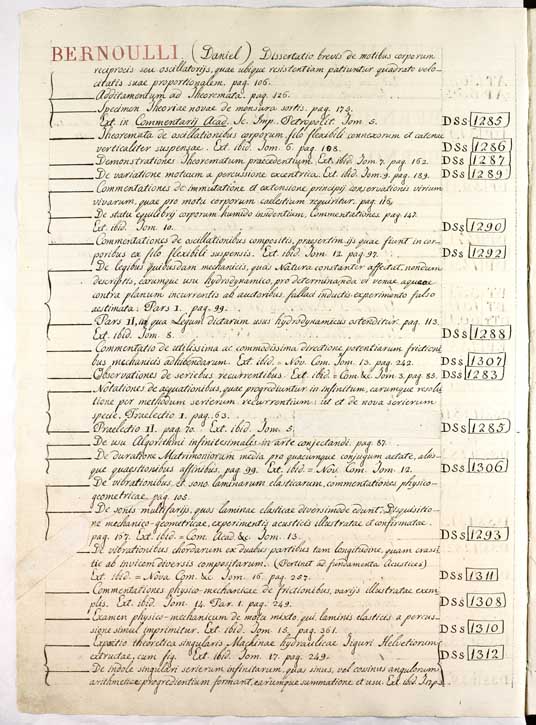 BERNOULLI (Daniel) Dissertatio brevis de motibus corporum
reciprocis seu oscillatorijs, quae ubique resistentiam patiuntur quadrato velo-
citatis suae proportionalem. pag. 106.
Additamentum ad Theoremata. pag. 126.
Specimen Theoriae novae de mensura sortis. pag. 175.
Ext. in Commentarij Acad. Sc. Imp. Petropolit. Tom. 5. DSs 1285
Theoremata de oscillationibus corporum filo flexibili connexorum et catenae
verticaliter suspensae. Ext. ibid. Tom. 6. pag. 108. DSs 1286
Demonstrationes Theorematum praecedentium. Ext. ibid. Tom. 7. pag. 162. DSs 1287
De variatione motuum a percussione excentrica. Ext. ibid. Tom. 9. pag. 189. DSs 1289
Commentationes de immutatione et extensione principij conservationis virium
vivarum, quae pro motu corporum caelestium requiritur. pag. 116.
De statu equilibrij corporum humido insidentium, Commentationes pag. 147.
Ext. ibid. Tom. 10. DSs 1290
Commentationes de oscillationibus compositis, praesertim ijs quae fiunt in cor-
poribus ex filo flexibili suspensis. Ext. ibid. Tom. 12. pag. 97. DSs 1292
De legibus quibusdam mechanicis, quas Natura constanter affectat, nondum
descriptis, earumque usu hydrodynamico, pro determinanda vi venae aquae
contra planum incurrentis ab auctoribus fallaci inductis experimento falso
aestimata. Pars I. pag. 99.
Pars II, in qua Legum dictarum usus hydrodynamicus ostenditur. pag. 113.
Ext. ibid. Tom. 8. DSs 1288
Commentatio de utilissima ac commodissima directione potentiarum frictioni-
bus mechanicis adhibendarum. Ext. ibid. = Nov. Com. Tom. 13. pag. 242. DSs 1307
Observationes de seriebus recurrentibus. Ext. ibid. = Com. &c. Tom. 3. pag. 85. DSs 1283
Notationes de aequationibus, quae progrediuntur in infinitum, earumque resolu-
tione per methodum serierum recurrentium: ut et de nova serierum
specie. Praelectio I. pag. 63.
Praelectio II. pag. 70. Ext. ibid. Tom. 5. DSs 1285
De usu Algorithmi infinitesimalis in arte conjectandi. pag. 87.
De duratione Matrimoniorum media pro quacumque conjugum aetate, alos-
que quaestionibus affinibus. pag. 99. Ext. ibid. = Nov. Com. Tom. 12. DSs 1306
De vibrationibus, et sono laminarum elasticarum, commentationes physico-
geometricae. pag. 105.
De sonis multifarijs, quos laminae elasticae diversimode edunt: Disquisitio-
ne mechanico-geometricae, experimentis acusticis illustratae et confirmatae.
pag. 167. Ext. ibid. = Com. Acad. &c. Tom. 13. DSs 1293
De vibrationibus chordarum ex duabus partibus tam longitudine, quam crassi-
tie ab invicem diversis compositarum. (Pertinet ad fundamenta Acustices)
Ext. ibid. = Nova Com. &c. Tom. 16. pag. 257. DSs 1311
Commentationes physico-mechanicae de frictionibus, varijs illustratae exem-
plis. Ext. ibid. Tom. 14. Par. 1. pag. 249. DSs 1308
Examen physico-mechanicum de motu mixto, qui laminis elasticis a percus-
sione simul imprimitur. Ext. ibid. Tom. 15. pag. 361. DSs 1310
Expositio theoretica singularis Machinae hydraulicae Tiguri Helvetiorum
extructae, cum fig. Ext. ibid. Tom. 17. pag. 249. DSs 1312
De indole singulari serierum infinitarum, quas sinus, vel cosinus angulorum
arithmetice progredientium formant, earumque summatione et usu. Ext. ibid.